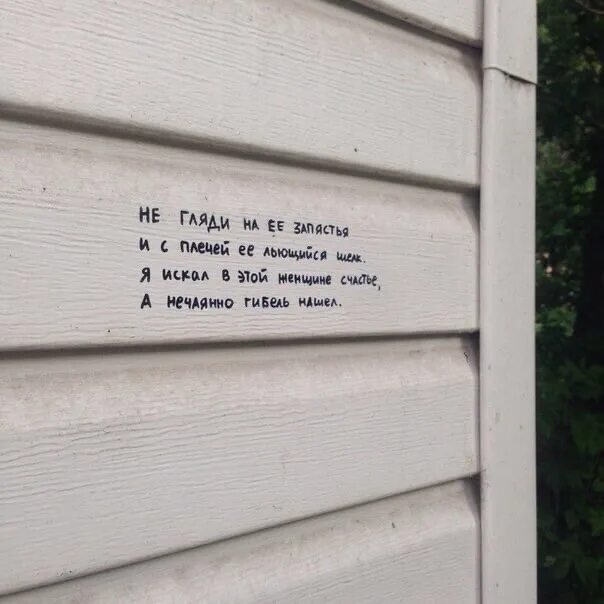 НЕ ГЛЯДИ НА ЕЕ ЗАПЯСТЬЯ
И С ПЛЕЧЕЙ ЕЕ ЛЬЮЩИЙСЯ ШЕЛК.
Я ИСКАЛ В ЭТОЙ ЖЕНЩИНЕ СЧАСТЬЕ,
А НЕЧАЯННО ГИБЕЛЬ НАШЕЛ.